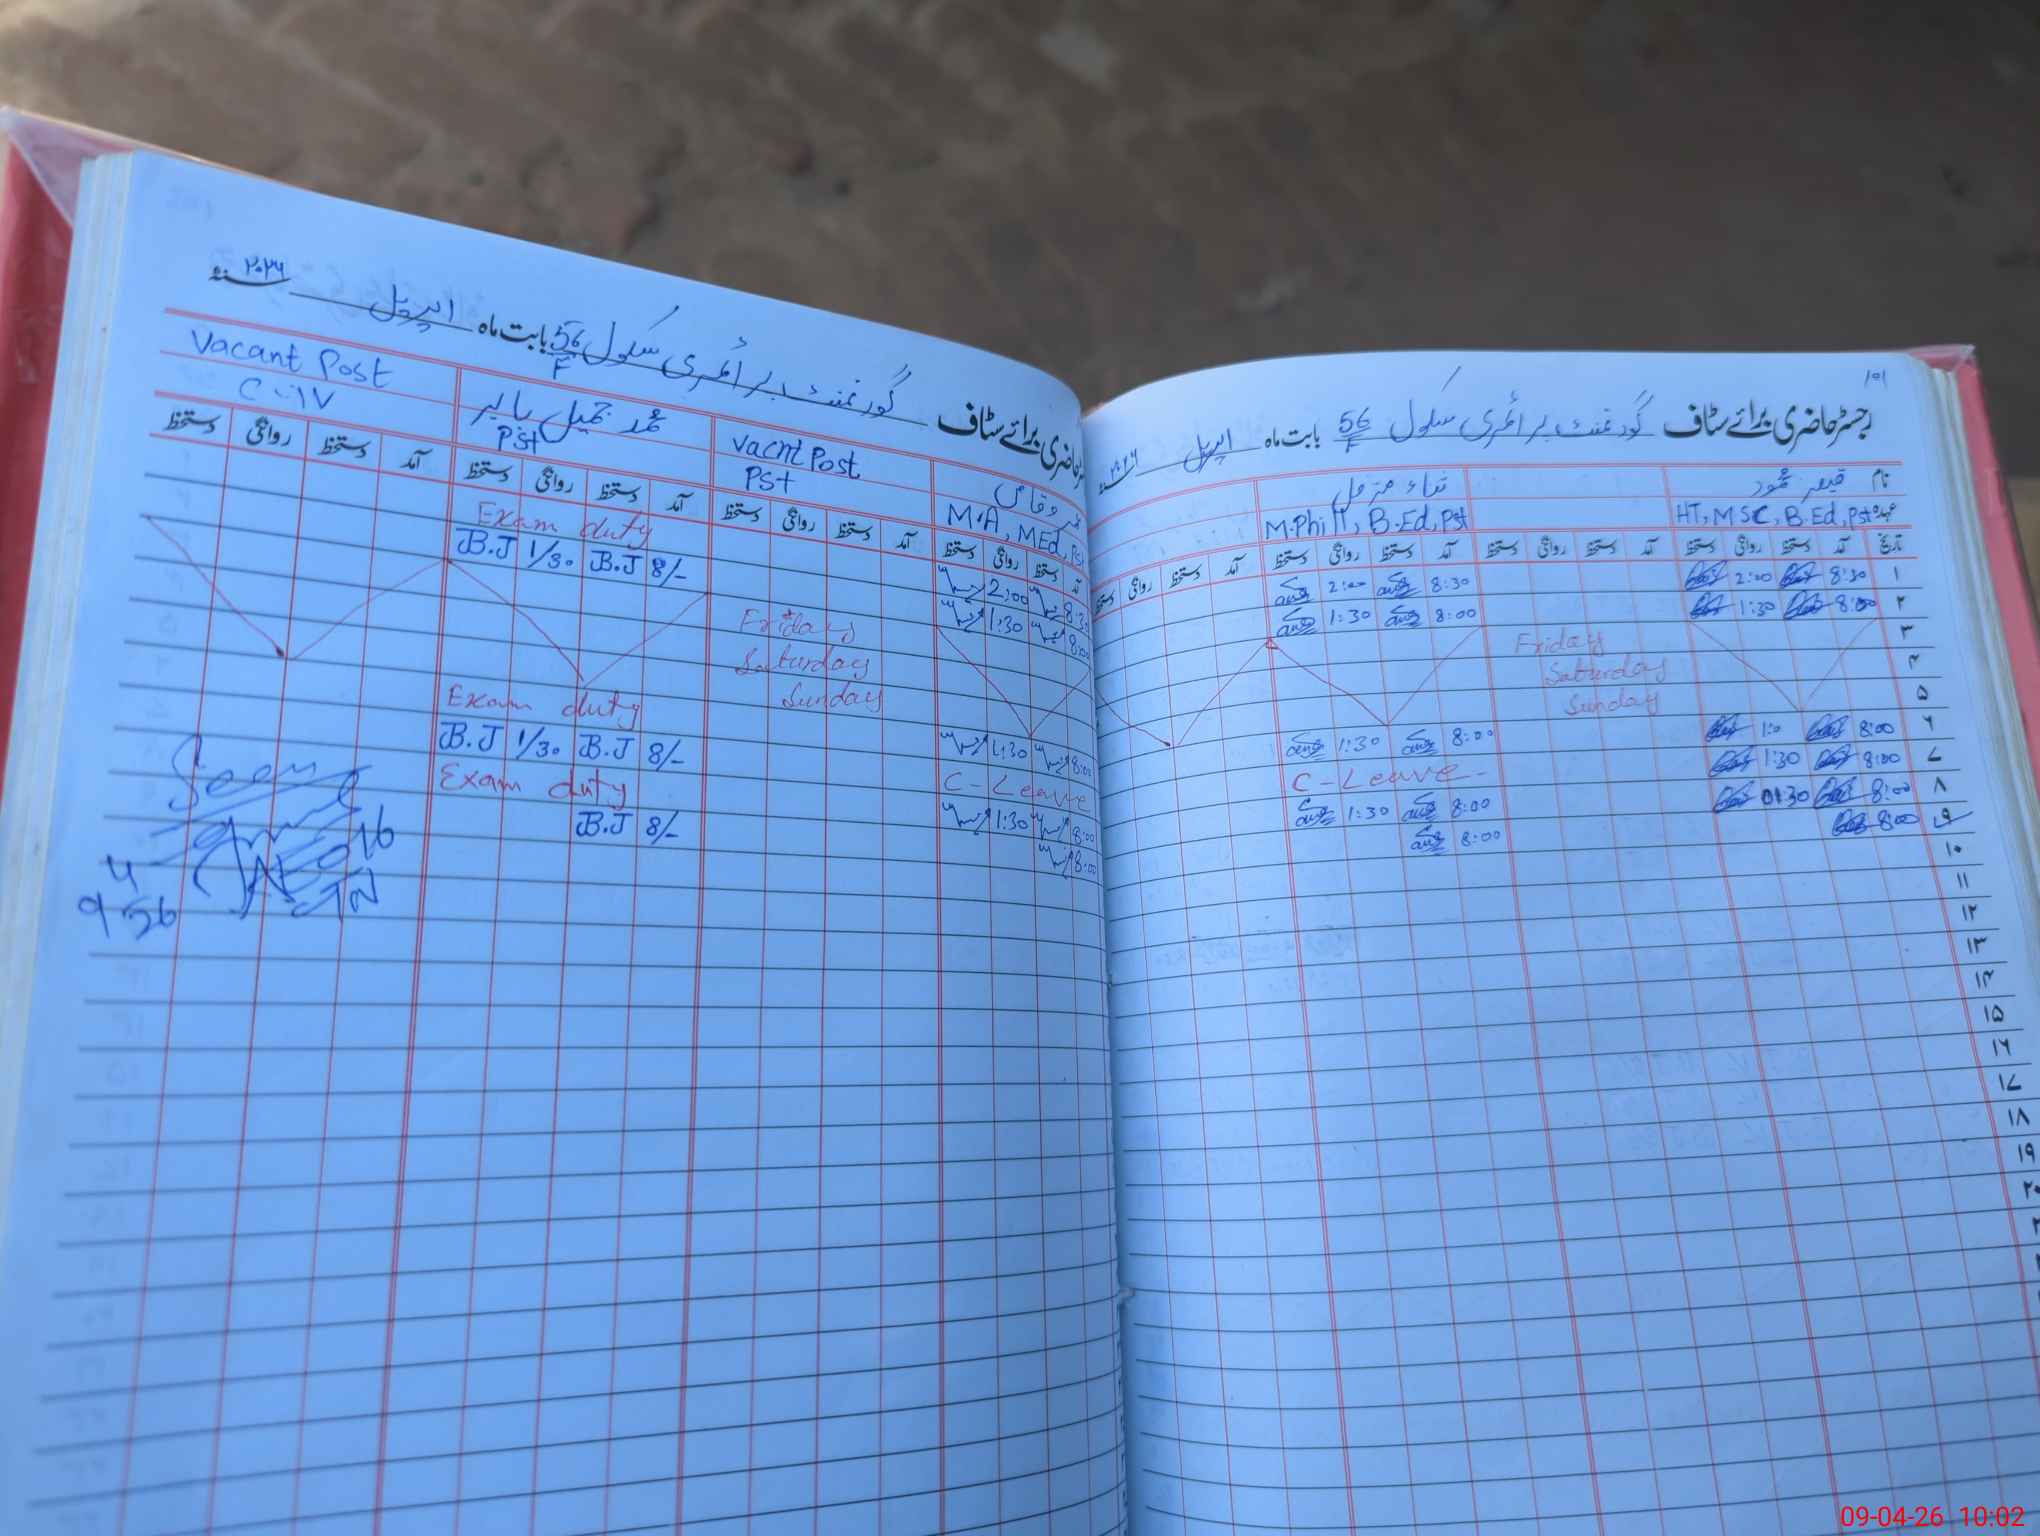 ۱۰۱
رجسٹر حاضری برائے سٹاف گورنمنٹ پرائمری سکول 56/F بابت ماہ اپریل ۲۰۲۶
نام قیصر محمود ثناء مزمل
عہدہ HT, M.SC, B.Ed, Pst M.Phill, B.Ed, Pst
تاریخ آمد دستخط روانگی دستخط آمد دستخط روانگی دستخط آمد دستخط روانگی دستخط آمد دستخط روانگی دستخط
۱ 8:30 2:00 8:30 2:00
۲ 8:00 1:30 8:00 1:30
۳ Friday
۴ Saturday
۵ Sunday
۶ 8:00 1:0 8:00 1:30
۷ 8:00 1:30 C-Leave-
۸ 8:00 01:30 8:00 1:30
۹ 8:00 8:00
۱۰
۱۱
۱۲
۱۳
۱۴
۱۵
۱۶
۱۷
۱۸
۱۹
۲۰
حاضری برائے سٹاف گورنمنٹ پرائمری سکول 56/F بابت ماہ اپریل ۲۰۲۶ سنہ
وقاص Vacnt Post محمد جمیل بابر Vacant Post
M.A, MEd, Pst PSt Pst C-IV
آمد دستخط روانگی دستخط آمد دستخط روانگی دستخط آمد دستخط روانگی دستخط آمد دستخط روانگی دستخط
8:30 2:00 Exam duty
8:00 1:30 B.J 1/30 B.J 8/-
Friday
Saturday
Sunday
8:00 1:30 Exam duty
C-Leave B.J 1/30 B.J 8/-
8:00 1:30 Exam duty
8:00 B.J 8/-
Seen
9/4/26
09-04-26 10:02